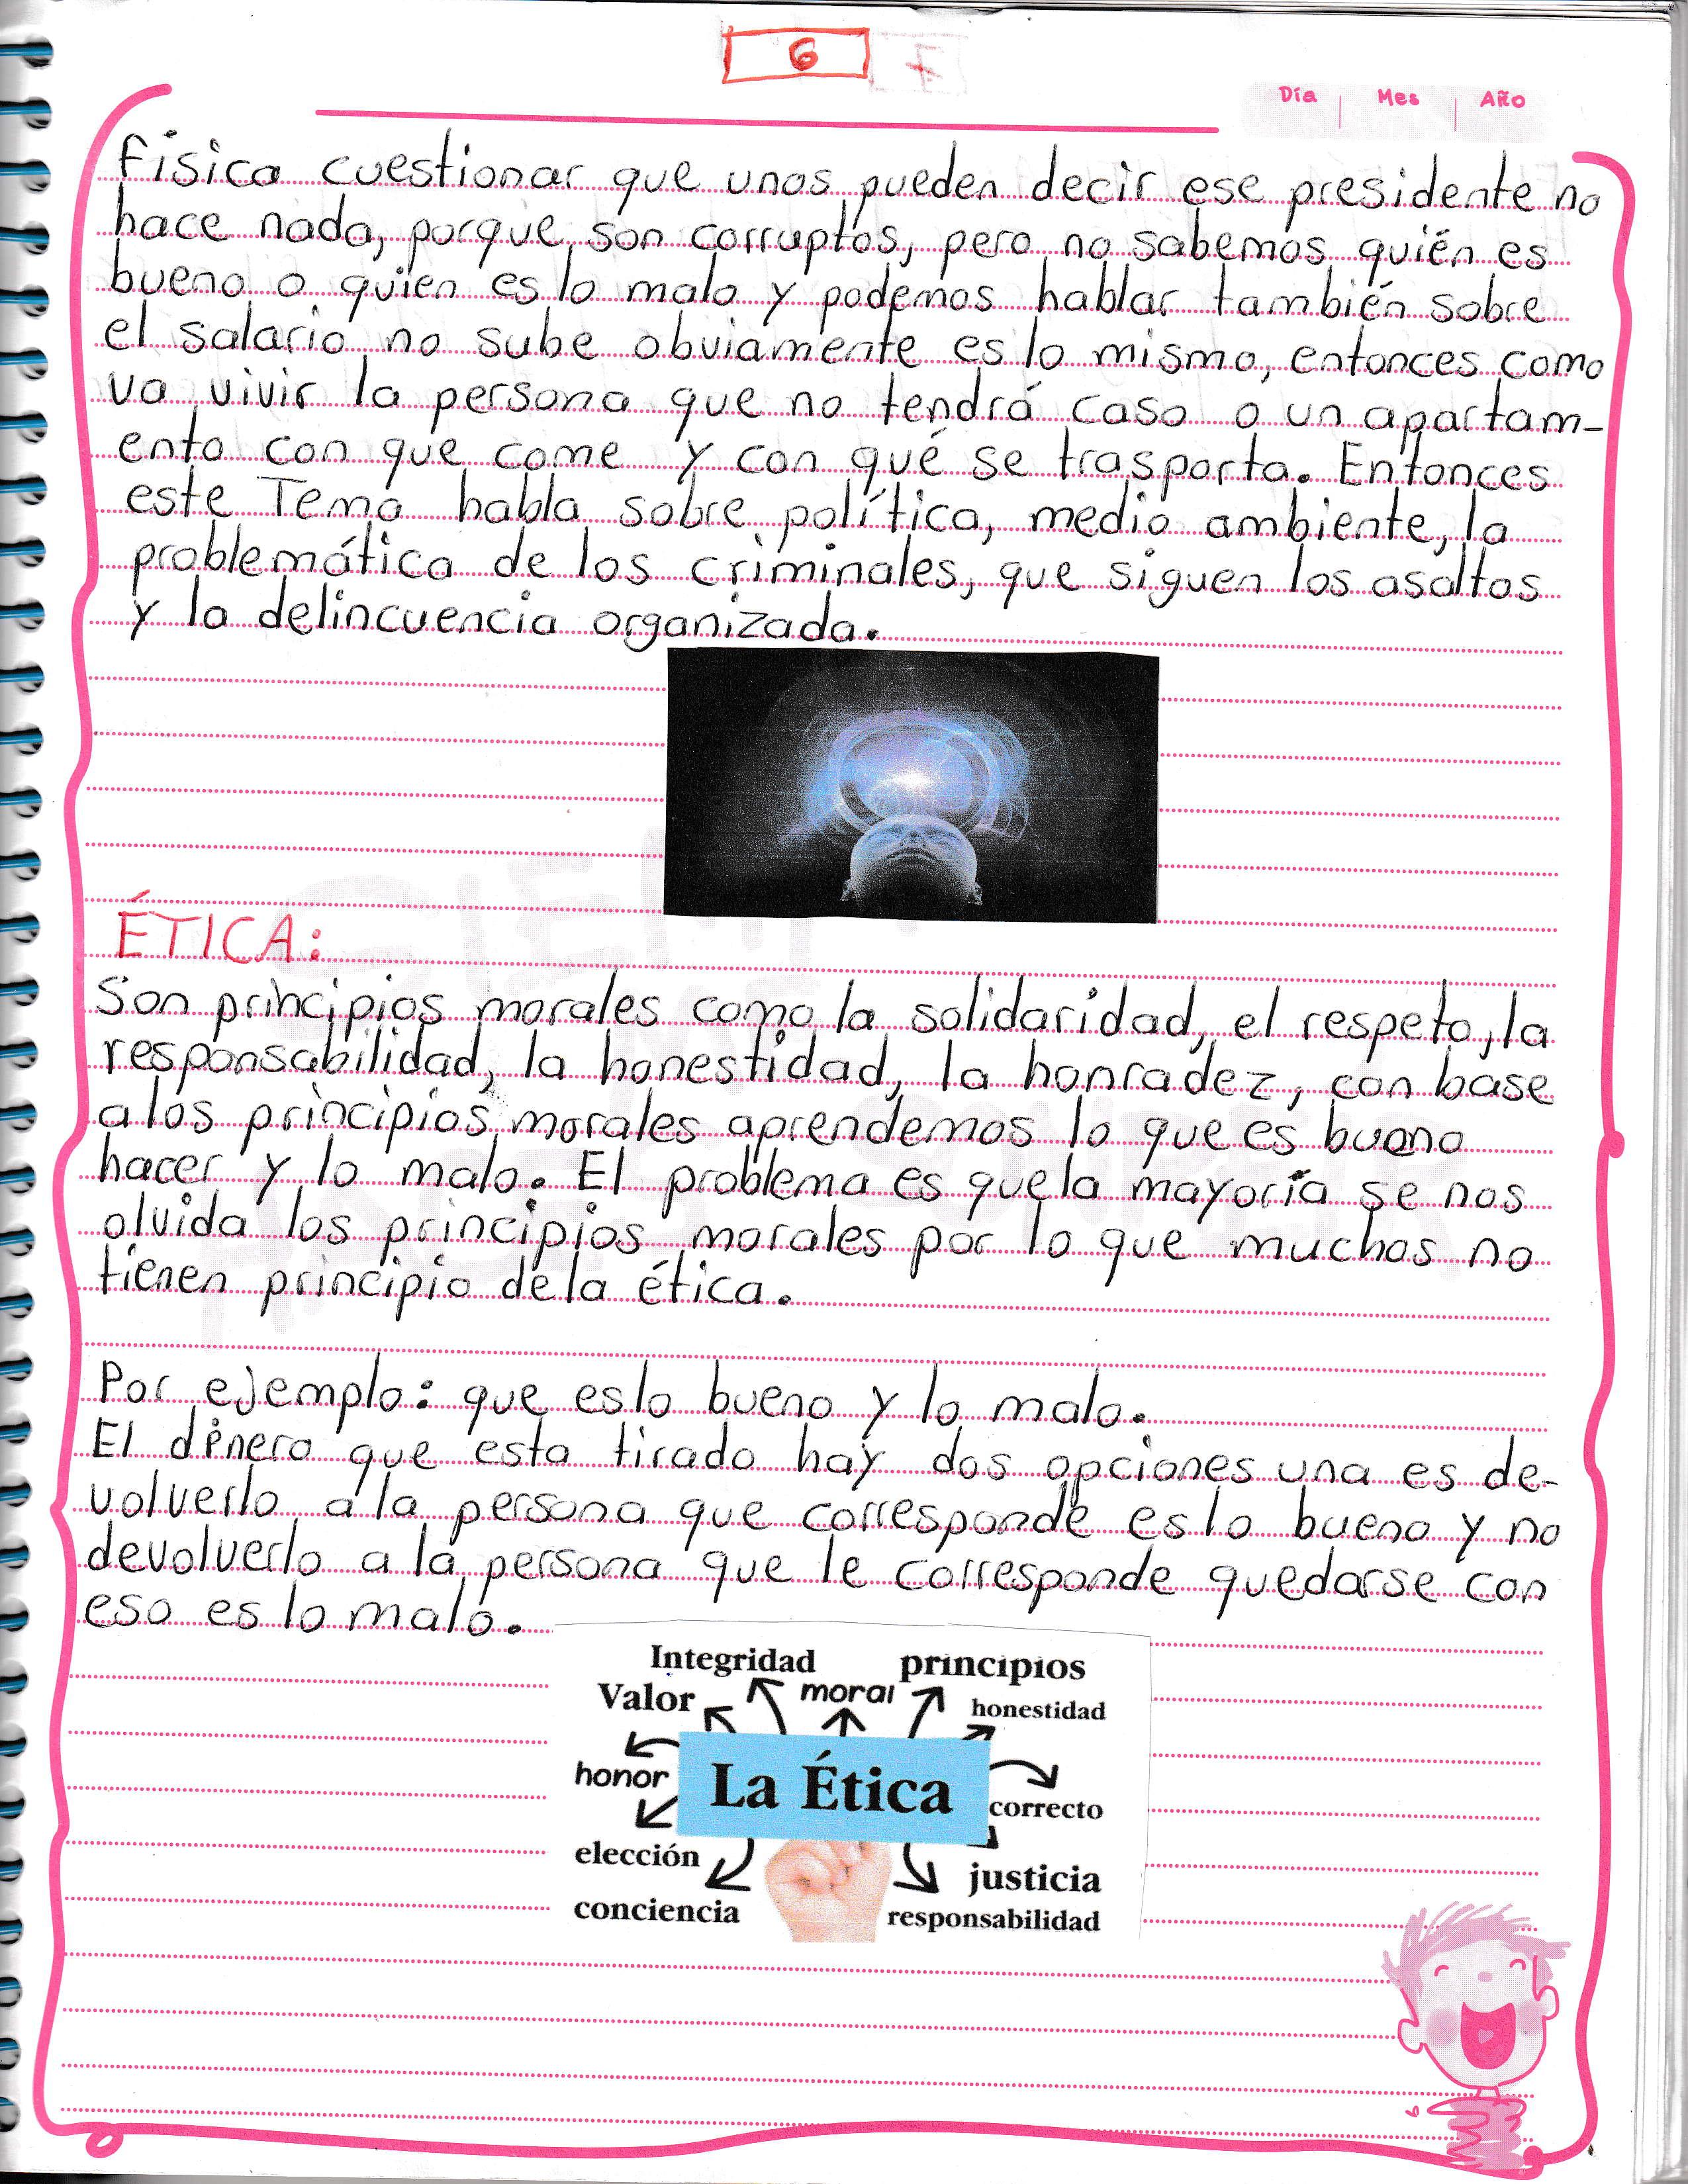 6
Día Mes Año
Física cuestionar que unos pueden decir ese presidente no
hace nada, porque son corruptos, pero no sabemos quién es
bueno o quien es lo malo y podemos hablar también sobre
el salario no sube obviamente es lo mismo, entonces como
va vivir la persona que no tendrá casa o un apartam-
ento con que come y con qué se trasporta. Entonces
este Tema habla sobre política, medio ambiente, la
problemática de los criminales, que siguen los asaltos
y la delincuencia organizada.
ÉTICA:
Son principios morales como la solidaridad, el respeto, la
responsabilidad, la honestidad, la honradez, con base
a los principios morales aprendemos lo que es bueno
hacer y lo malo. El problema es que la mayoría se nos
olvida los principios morales por lo que muchos no
tienen principio de la ética.
Por ejemplo: que es lo bueno y lo malo.
El dinero que esta tirado hay dos opciones una es de-
volverlo a la persona que corresponde es lo bueno y no
devolverlo a la persona que le corresponde quedarse con
eso es lo malo.
Integridad principios
Valor moral honestidad
honor La Ética correcto
elección justicia
conciencia responsabilidad